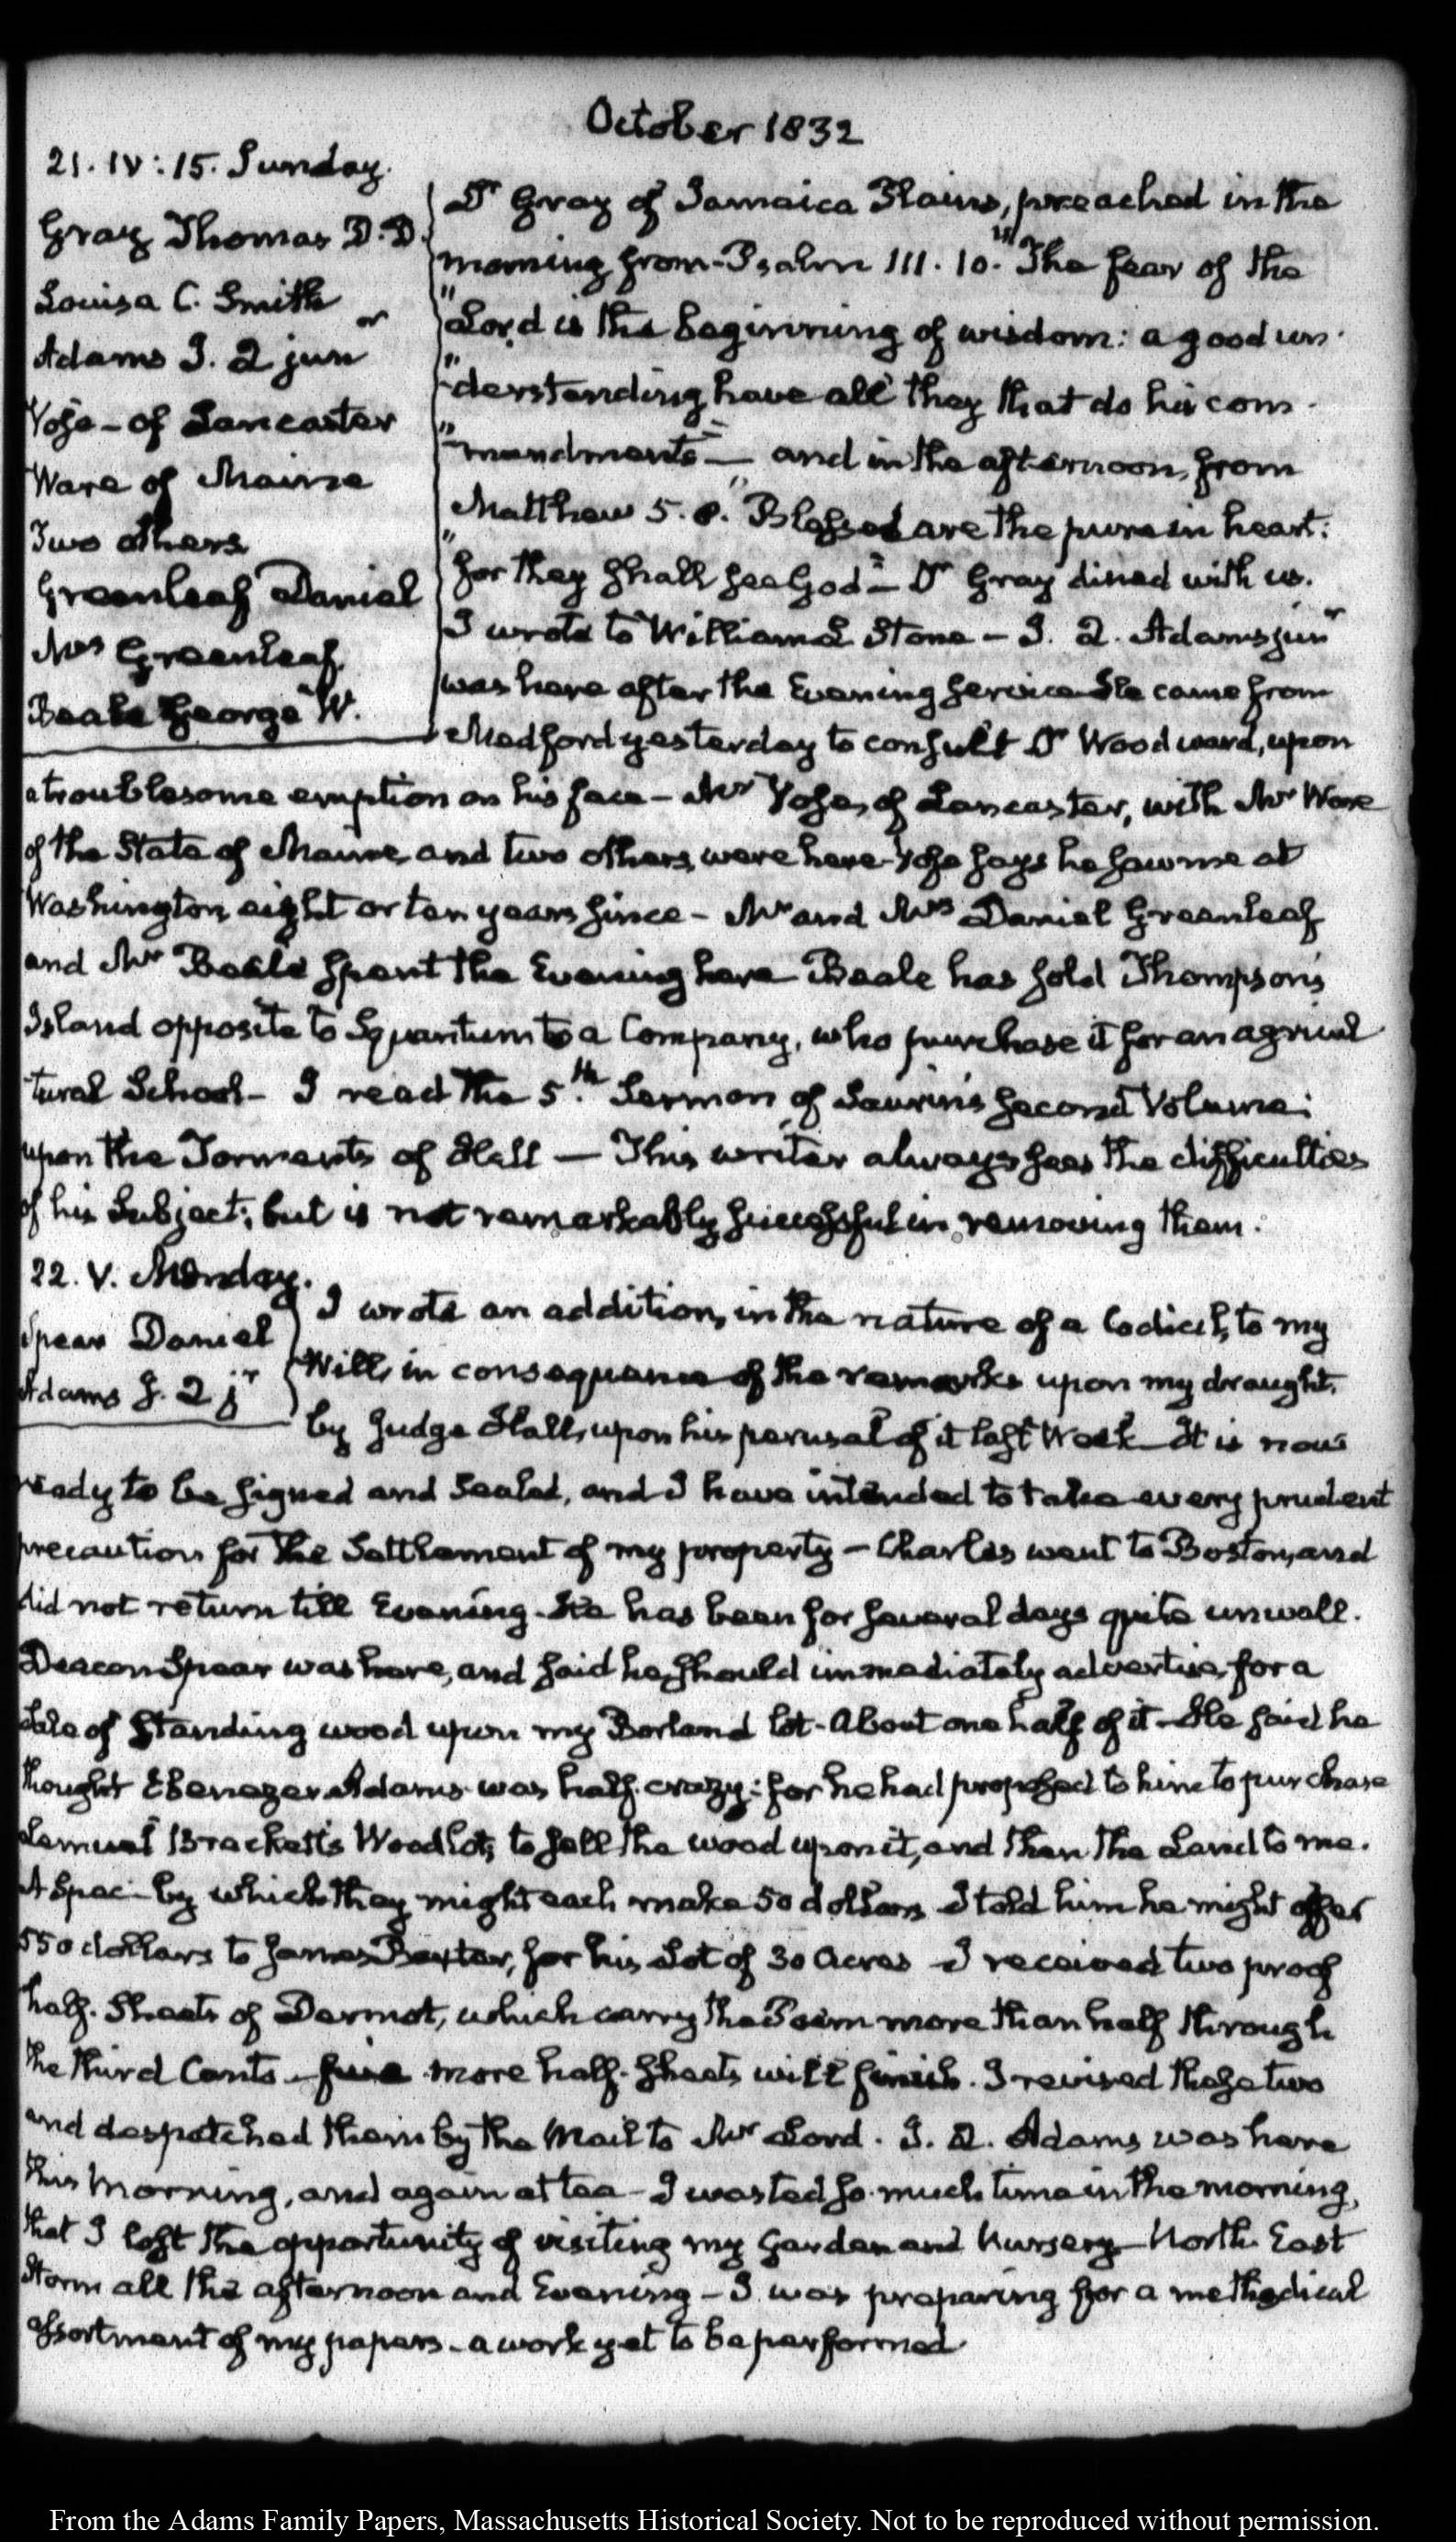 October 1832
21. IV:15. Sunday.
Gray Thomas D.D.
Louisa C. Smith
Adams J. Q junr
Vose - of Lancaster
Ware of Maine
Two others
Greenleaf Daniel
Mrs Greenleaf
Beale George W.
Dr Gray of Jamaica Plains, preached in the
morning from Psalm 111. 10. "The fear of the
"Lord is the beginning of wisdom: a good un-
"derstanding have all they that do his com-
"mandments" — and in the afternoon, from
Matthew 5. 8. "Blessed are the pure in heart:
"for they shall see God" — Dr Gray dined with us.
I wrote to William L Stone — J. Q. Adams junr
was here after the Evening service He came from
Medford yesterday to consult Dr Woodward, upon
a troublesome eruption on his face — Mr Vose, of Lancaster, with Mr Ware
of the State of Maine, and two others, were here. Vose says he saw me at
Washington, eight or ten years since — Mr and Mrs Daniel Greenleaf
and Mr Beale spent the Evening here Beale has sold Thompson's
Island opposite to Squantum to a Company, who purchase it for an agricul
tural School — I read the 5th Sermon of Saurin's second Volume:
upon the Torments of Hell — This writer always sees the difficulties
of his Subject; but is not remarkably successful in removing them.
22. V. Monday.
Spear Daniel
Adams J. Q jr
I wrote an addition, in the nature of a Codicil, to my
Will, in consequence of the remarks upon my draught,
by Judge Hall, upon his perusal of it last Week — It is now
ready to be signed and sealed, and I have intended to take every prudent
precaution for the Settlement of my property — Charles went to Boston, and
did not return till Evening. He has been for several days quite unwell.
Deacon Spear was here, and said he should immediately advertise, for a
Sale of standing wood upon my Borland lot. About one half of it — He said he
thought Ebenezer Adams was half crazy: for he had proposed to him to purchase
Lemuel Brackett's Woodlot; to sell the wood upon it, and then the Land to me.
A Spec. by which they might each make 50 dollars I told him he might offer
550 dollars to James Baxter, for his Lot of 30 Acres — I received two proof
half-sheets of Dermot, which carry the Poem more than half through
the third Canto — five more half-sheets will finish. I revised these two
and despatched them by the Mail to Mr Lord. J. Q. Adams was here
this Morning, and again at tea — I wasted so much time in the morning,
that I lost the opportunity of visiting my Garden and Nursery — North East
Storm all the afternoon and Evening — I was preparing for a methodical
assortment of my papers — a work yet to be performed
From the Adams Family Papers, Massachusetts Historical Society. Not to be reproduced without permission.